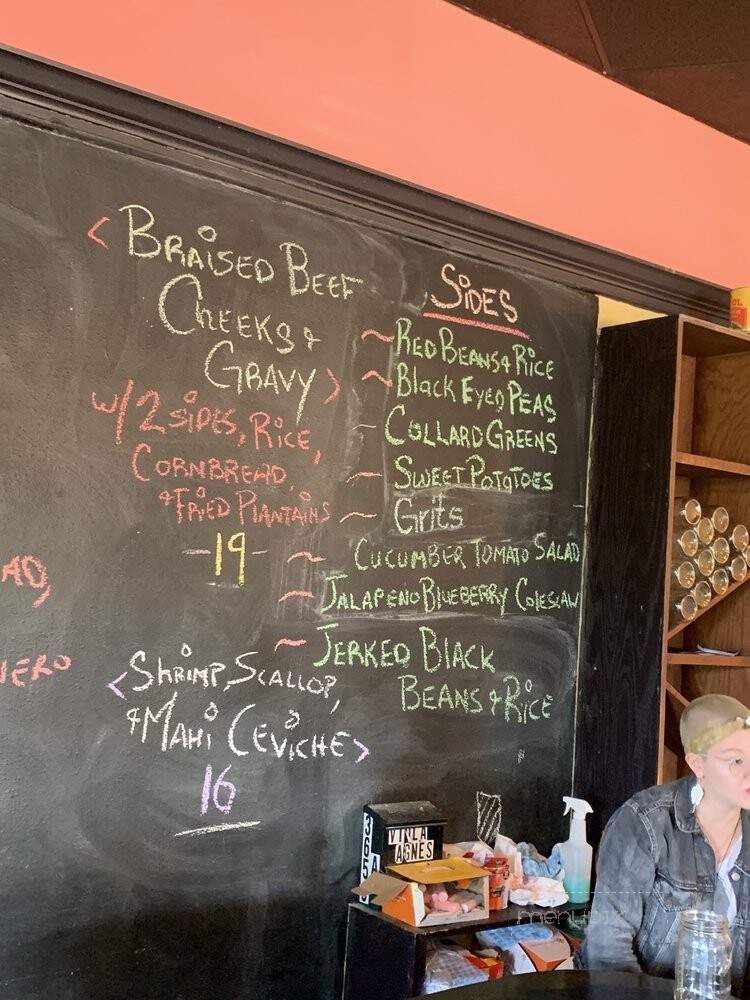 < BRAISED BEEF
CHEEKS &
GRAVY >
w/ 2 SIDES, RICE,
CORNBREAD,
& FRIED PLANTAINS
- 19 -
< SHRIMP, SCALLOP,
& MAHI CEVICHE >
16
SIDES
~ RED BEANS & RICE
~ BLACK EYED PEAS
~ COLLARD GREENS
~ SWEET POTATOES
~ Grits
~ CUCUMBER TOMATO SALAD
~ JALAPENO BLUEBERRY COLESLAW
~ JERKED BLACK
BEANS & RICE
VILLA
AGNES